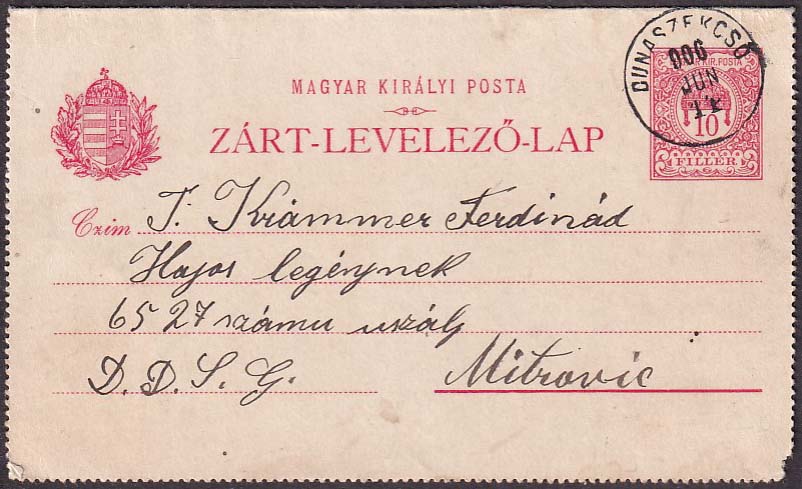 MAGYAR KIRÁLYI POSTA
ZÁRT-LEVELEZŐ-LAP
DUNASZEKCSŐ
906
JUN
KIR. POSTA
10
FILLÉR
Czim T. Krámmer Ferdinád
Hajos legénynek
6527 számu uszály
D. D. S. G. Mitrovic